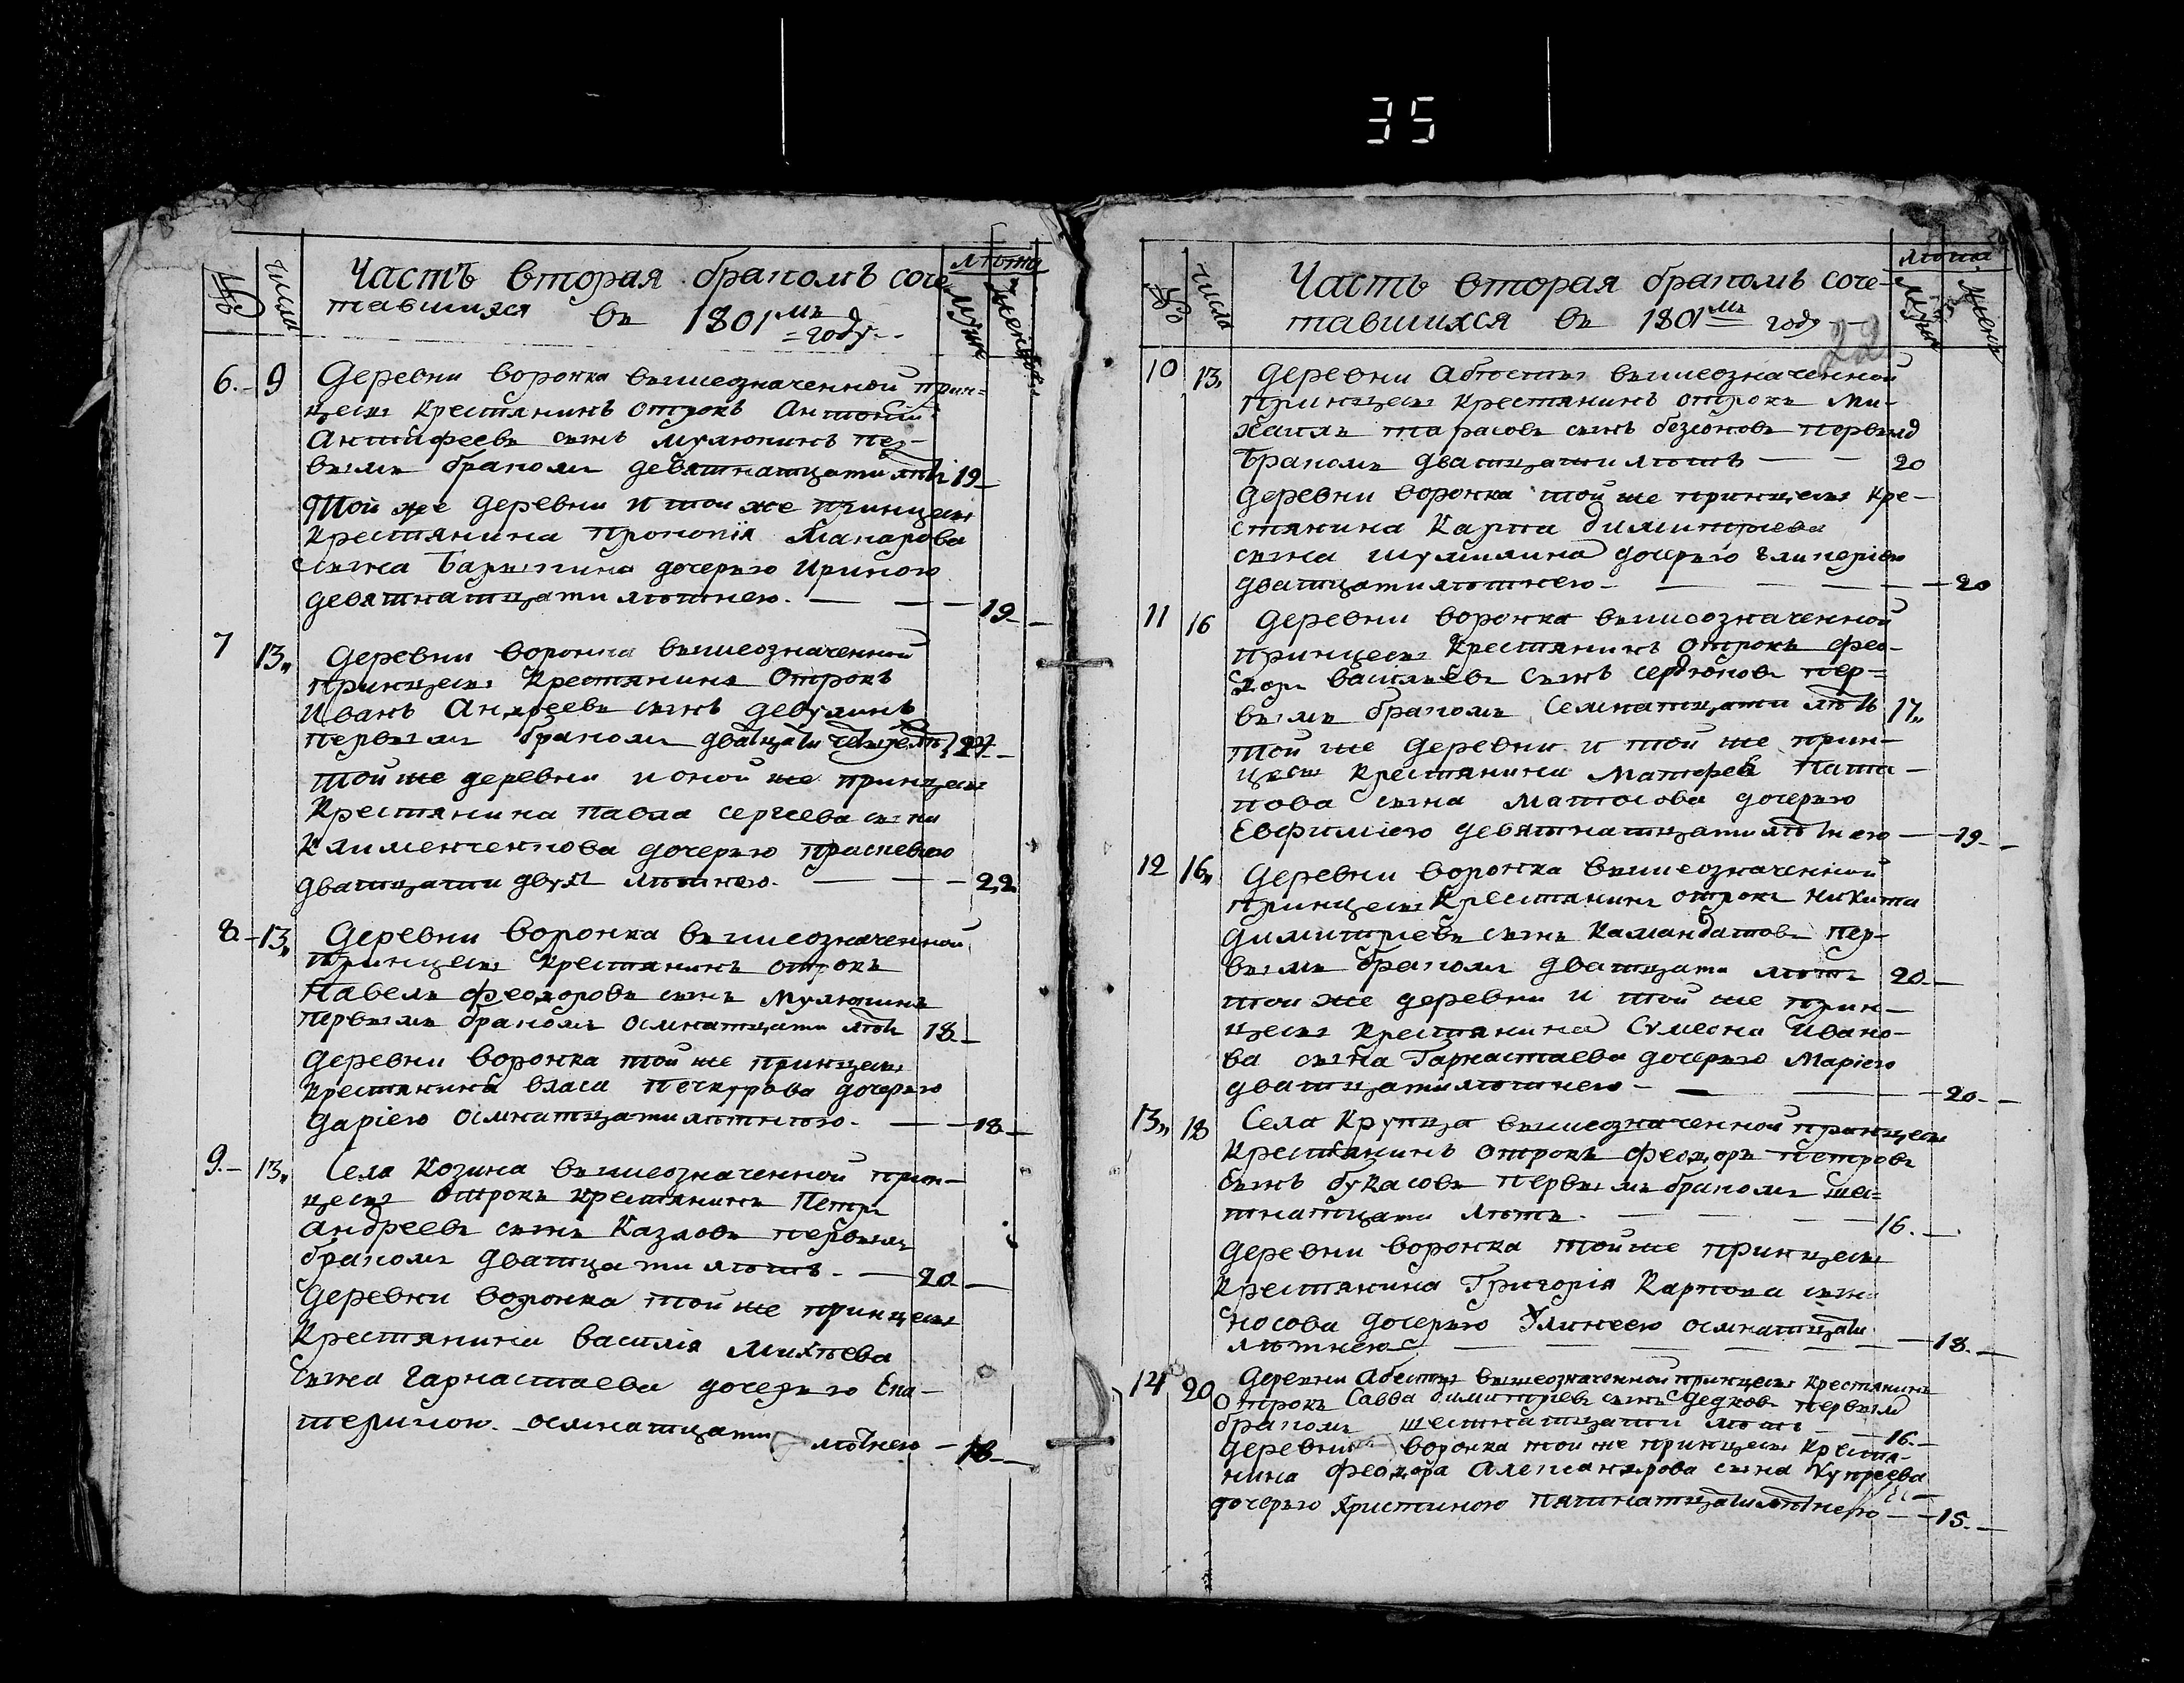 35
№ числа Часть вторая бракомъ соче лѣта
тавшихся въ 1801мъ году мужеск женска
6. 9 Деревни Воронка вышеозначенной прин-
цесы крестянинъ отрокъ Антоній
Антифеевъ сынъ Мулюкинъ пер-
вымъ бракомъ девятнатцати лѣтъ 19
Той же деревни и той же принцесы
крестянина Прокопія Макарова
сына дочерью Ириною
девятнатцатилѣтнею. 19
7 13 Деревни Воронка вышеозначенной
принцесы крестянинъ отрокъ
Иванъ Андреевъ сынъ Девулинъ
первымъ бракомъ дватцати четырехъ лѣтъ 24
той же деревни и оной же принцесы
крестянина Павла Сергеева сына
Клименченкова дочерью Праскевією
дватцати двухъ лѣтнею. 22
8 13 Деревни Воронка вышеозначенной
принцесы крестянинъ отрокъ
Павелъ Феодоровъ сынъ Мулюкинъ
первымъ бракомъ осмнатцати лѣтъ 18
Деревни Воронка той же принцесы
крестянина Власа Печкурова дочерью
Даріею осмнатцатилѣтнею. 18
9. 13 Села Козина вышеозначенной прин-
цесы отрокъ крестянинъ Петръ
Андреевъ сынъ Казловъ первымъ
бракомъ дватцати лѣтъ. 20
Деревни Воронка той же принцесы
крестянина Василія Михѣева
сына Гарнастаева дочерью Ека-
териною осмнатцати лѣтнею 18
№ число Часть вторая бракомъ соче- лѣта
тавшихся въ 1801мъ году 22 мужеск женск
10 13 Деревни вышеозначенной
принцесы крестянинъ отрокъ Ми-
хаилъ Тарасовъ сынъ Безсоновъ первымъ
бракомъ дватцати лѣтъ 20
Деревни Воронка той же принцесы кре-
стянина Карпа Димитріева
сына Шумилина дочерью Гликеріею
дватцатилѣтнею. 20
11 16 Деревни Воронка вышеозначенной
принцесы крестянинъ отрокъ Фео-
доръ Васильевъ сынъ Сердюковъ пер-
вымъ бракомъ семнатцати лѣтъ 17
той же деревни и той же прин-
цесы крестянина Матфея Пата-
пова сына Матюсова дочерью
Евфиміею девятнатцатилѣтнею 19
12 16 Деревни Воронка вышеозначенной
принцесы крестянинъ отрокъ Никита
Димитріевъ сынъ Камандатовъ пер-
вымъ бракомъ дватцати лѣтъ 20
той же деревни и той же прин-
цесы крестянина Сумеона Ивано-
ва сына Гарнастаева дочерью Маріею
дватцатилѣтнею 20
13 18 Села Крупца вышеозначенной принцесы
крестянинъ отрокъ Феодоръ Петровъ
сынъ Букасовъ первымъ бракомъ шес-
тнатцати лѣтъ. 16.
Деревни Воронка той же принцесы
крестянина Григорія Карпова сына
Носова дочерью осмнатцати
лѣтнею 18
14 20 Деревни вышеозначенной принцесы крестянинъ
отрокъ Савва Димитріевъ сынъ Дедковъ первымъ
бракомъ шестнатцати лѣтъ 16.
Деревни Воронка той же принцесы крестя-
нина Феодора Александрова сына Купреева
дочерью Христиною пятнатцатилѣтнею 15.